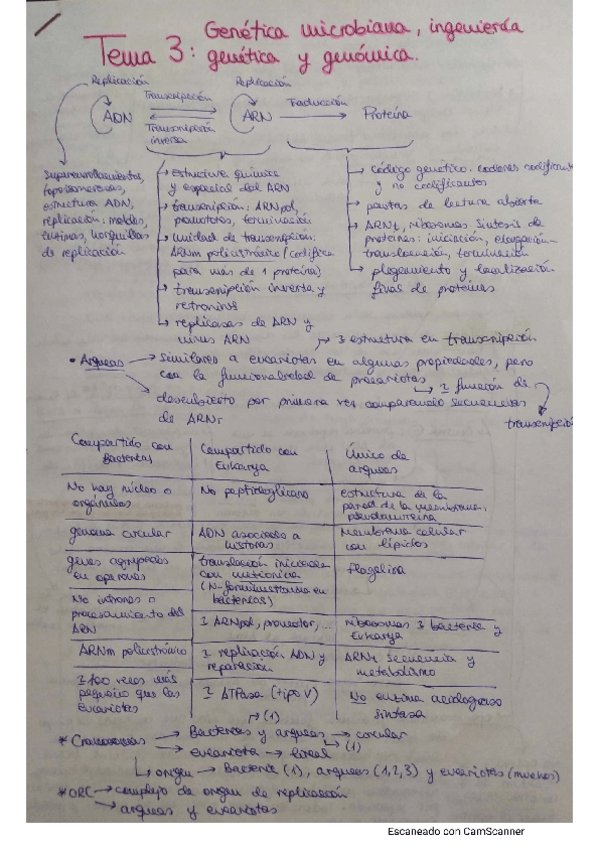 Genética microbiana, ingeniería
Tema 3: genética y genómica.
Replicación Replicación
ADN Transcripción ARN Traducción Proteína
Transcripción
inversa
Superenrollamientos,
topoisomerasas,
estructura ADN,
replicación: moldes,
enzimas, horquillas
de replicación
estructura química
y espacial del ARN
transcripción: ARNpol,
promotores, terminación
unidad de transcripción:
ARNm policistrónico (codifica
para más de 1 proteína)
transcripción inversa y
retrovirus
replicasas de ARN y
virus ARN
código genético. codones codificantes
y no codificantes
pautas de lectura abierta
ARNt, ribosomas, síntesis de
proteínas: iniciación, elongación
translocación, terminación
plegamiento y localización
final de proteínas
estructura en transcripción
• Arqueas → Similares a eucariotas en algunas propiedades, pero
con la funcionalidad de procariotas
función de
transcripción
descubierto por primera vez comparando secuencias
de ARNr
Compartido con
Bacterias
Compartido con
Eukarya
Único de
arqueas
No hay núcleo o
orgánulos
No peptidoglicano
estructura de la
pared de la membrana,
pseudomureina
genoma circular
ADN asociados a
histonas
Membrana celular
con lípidos
genes agrupados
en operones
translación iniciada
con metionina
(N-formilmetionina en
bacterias)
Flagelina
No intrones o
procesamiento del
ARN
ARNpol, promotor,...
ribosomas bacteria y
Eukarya
ARNm policistrónico
replicación ADN y
reparación
ARNt secuencia y
metabolismo
100 veces más
pequeño que las
eucariotas
ATPasa (tipo V)
No enzima acidograso
sintasa
(1)
* Cromosomas → Bacterias y arqueas → circular
(1)
eucariota → lineal
origen → Bacteria (1), arqueas (1,2,3) y eucariotas (muchos)
* ORC → complejo de origen de replicación
arqueas y eucariotas
Escaneado con CamScanner